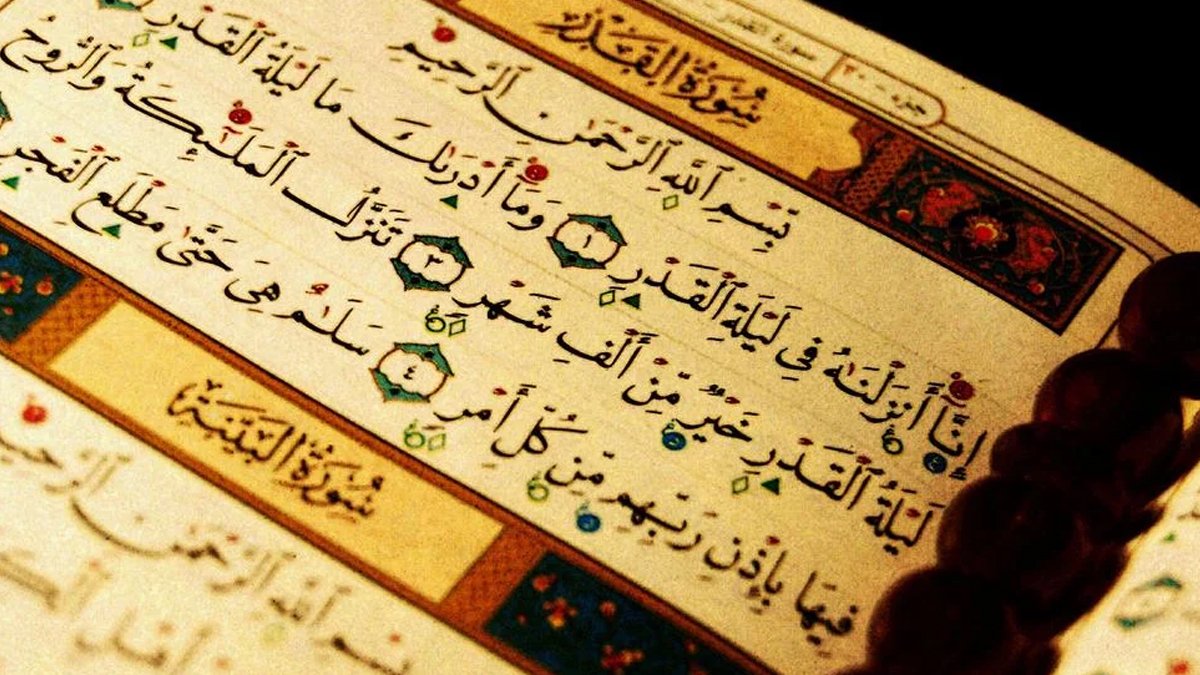 جزء - ٣٠ سورة القدر
سُورَةُ القَدْرِ
بِسْمِ ٱللَّهِ ٱلرَّحْمَٰنِ ٱلرَّحِيمِ
إِنَّآ أَنزَلْنَٰهُ فِى لَيْلَةِ ٱلْقَدْرِ ١ وَمَآ أَدْرَىٰكَ مَا لَيْلَةُ ٱلْقَدْرِ
لَيْلَةُ ٱلْقَدْرِ خَيْرٌ مِّنْ أَلْفِ شَهْرٍ ٣ تَنَزَّلُ ٱلْمَلَٰٓئِكَةُ وَٱلرُّوحُ
فِيهَا بِإِذْنِ رَبِّهِم مِّن كُلِّ أَمْرٍ ٤ سَلَٰمٌ هِىَ حَتَّىٰ مَطْلَعِ ٱلْفَجْرِ
سُورَةُ البَيِّنَةِ
بِسْمِ ٱللَّهِ ٱلرَّحْمَٰنِ
أَهْلِ